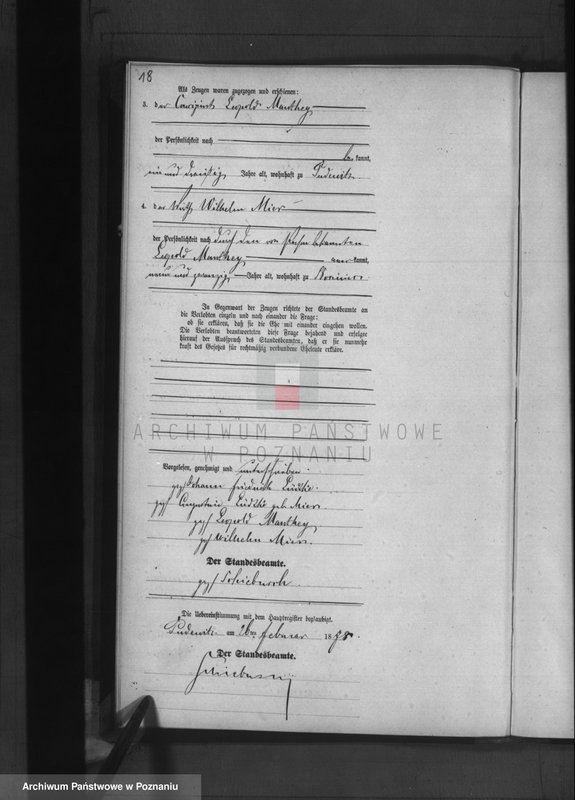 18
Als Zeugen waren zugezogen und erschienen:
3. der Leopold Manthey
der Persönlichkeit nach
be kannt,
ein und dreißig Jahre alt, wohnhaft zu Pudewitz
4. der Wirth Wilhelm Mier
der Persönlichkeit nach durch den von Person bekannten
Leopold Manthey aner kannt,
neun und zwanzig Jahre alt, wohnhaft zu
In Gegenwart der Zeugen richtete der Standesbeamte an
die Verlobten einzeln und nach einander die Frage:
ob sie erklären, daß sie die Ehe mit einander eingehen wollen.
Die Verlobten beantworteten diese Frage bejahend und erfolgte
hierauf der Ausspruch des Standesbeamten, daß er sie nunmehr
kraft des Gesetzes für rechtmäßig verbundene Eheleute erkläre.
ARCHIWUM PAŃSTWOWE
W POZNANIU
Vorgelesen, genehmigt und unterschrieben.
gez. Johann Friedrich Lüdtke.
gez. Lüdtke geb. Mier.
gez. Leopold Manthey
gez. Wilhelm Mier.
Der Standesbeamte.
gez. Schiebusch
Die Uebereinstimmung mit dem Hauptregister beglaubigt.
Pudewitz am 26ten Februar 1878.
Der Standesbeamte.
Schiebusch
Archiwum Państwowe w Poznaniu